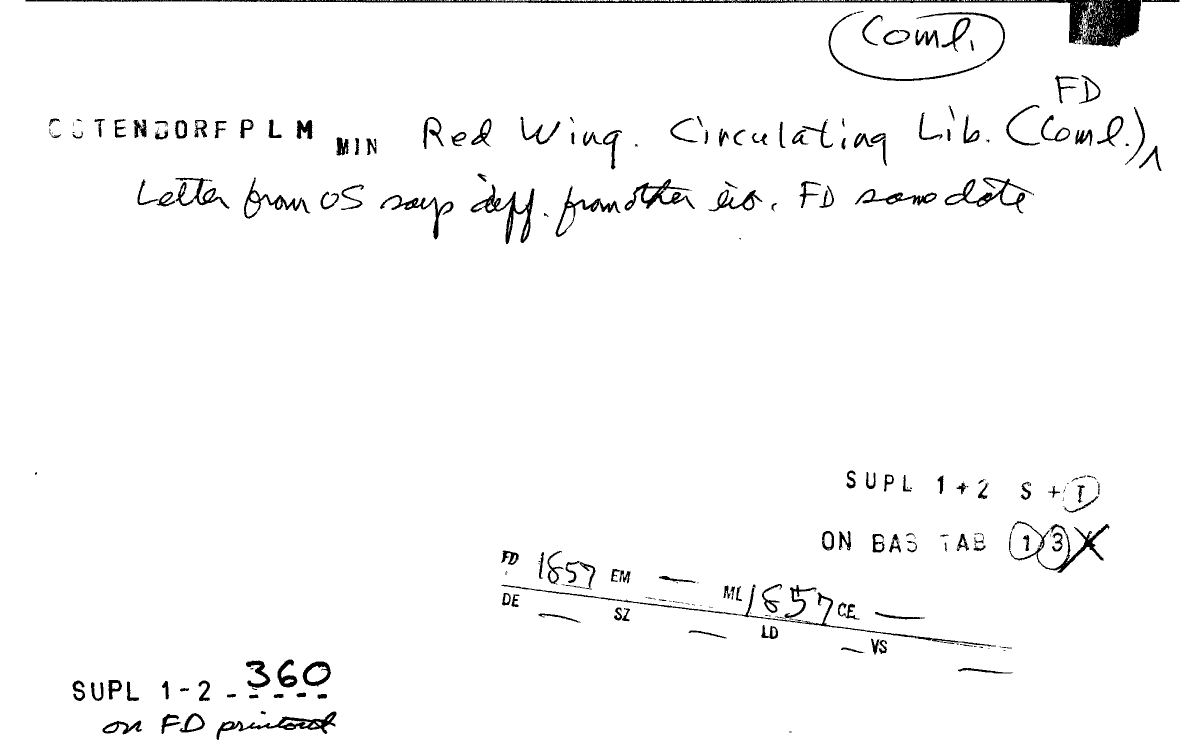 Coml.
FD
OSTENDORF P L M MIN Red Wing. Circulating Lib. (Coml.)
Letter from OS says diff. from other lib. FD same date
SUPL 1+2 S + T
ON BAS TAB 1 3
FD 1857 EM — ML 1857 CE —
DE — SZ — LD — VS —
SUPL 1-2 - 360
on FD printout